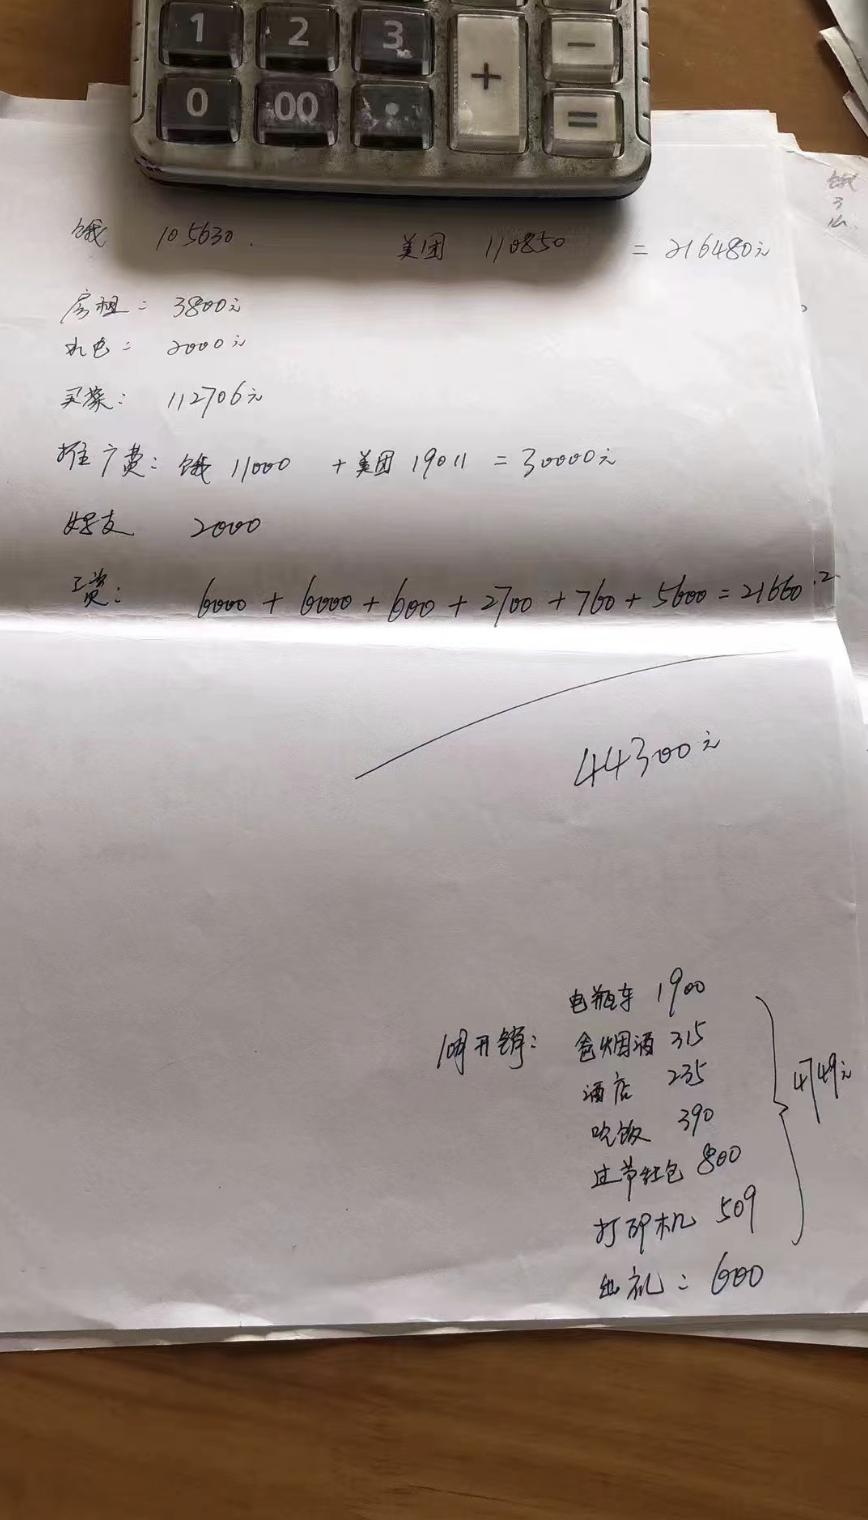 1 2 3 + -
0 00 . =
饿
3
饿 105630. 美团 110850 = 216480元
房租: 3800元
水电: 2000元
买菜: 112706元
推广费: 饿 11000 + 美团 19011 = 30000元
2000
工资: 6000 + 6000 + 600 + 2700 + 760 + 5600 = 21660.2
44300元
电瓶车 1900
开销: 爸烟酒 315
酒店 235
吃饭 390
过节红包 800
打印机 509
出礼: 600
4749元